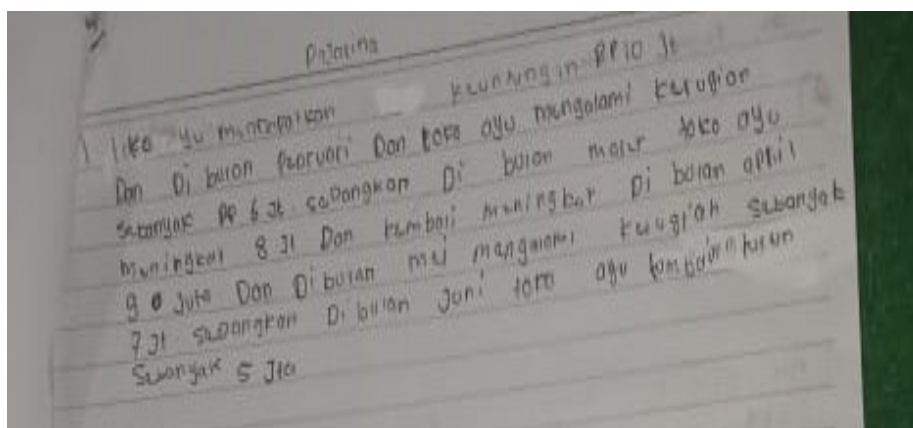 1 toko yu mendapatkan keuntungan RP 10 Jt
Dan Di bulan Februari Dan toko ayu mengalami kerugian
sebanyak RP 6 Jt sedangkan Di bulan maret toko ayu
meningkat 8 Jt Dan kembali meningkat Di bulan april
9 Juta Dan Di bulan mei mengalami kerugian sebanyak
7 Jt sedangkan Di bulan Juni toko ayu kembali turun
Sebanyak 5 Jta